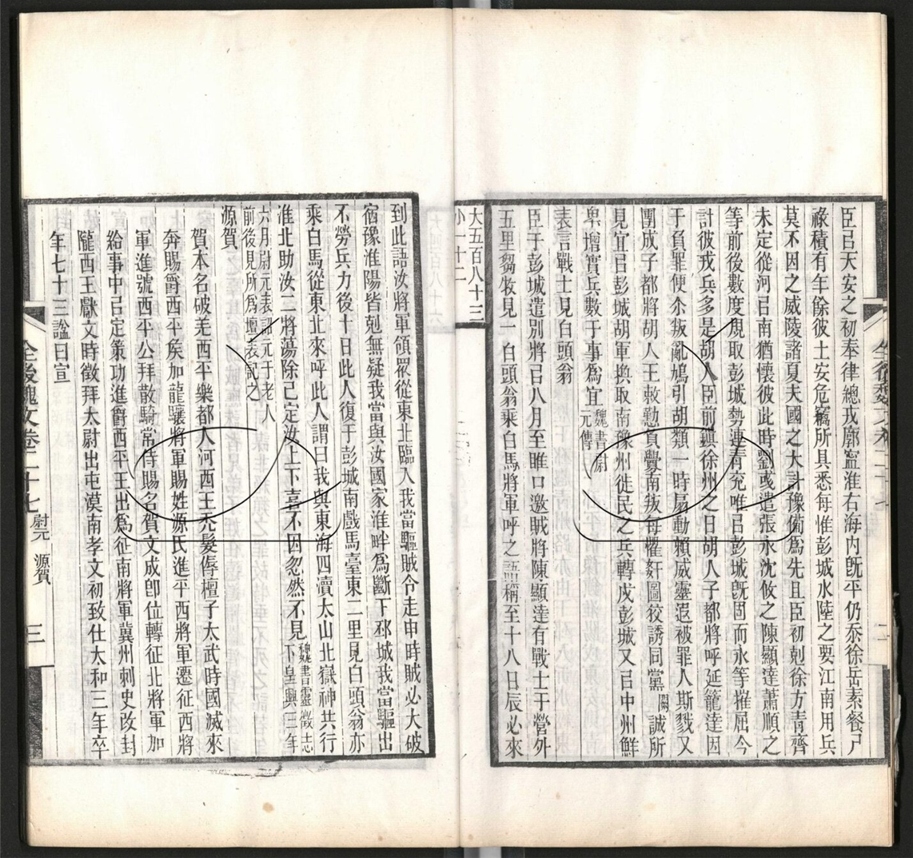 臣㠯天安之初奉律總戎廓寧淮右海内旣平仍忝徐岳素餐尸
祿積有年餘彼土安危竊所具悉每惟彭城水陸之要江南用兵
莫不因之威陵諸夏夫國之大計豫備爲先且臣初剋徐方青齊
未定從河㠯南猶懷彼此時劉彧遣張永沈攸之陳顯達蕭順之
等前後數度規取彭城勢連青兗唯㠯彭城旣固而永等摧屈今
計彼戎兵多是胡人臣前鎮徐州之日胡人子都將呼延籠達因
于負罪便尒叛亂鳩引胡類一時扇動賴威靈遐被罪人斯戮又
團城子都將胡人王敕懃負釁南叛每懼姧圖狡誘同黨闕誠所
見宜㠯彭城胡軍換取南豫州徙民之兵轉戍彭城又㠯中州鮮
卑增實兵數于事爲宜魏書尉元傳
表言戰士見白頭翁
臣于彭城遣別將㠯八月至睢口邀賊將陳顯達有戰士于營外
五里芻牧見一白頭翁乘白馬將軍呼之語稱至十八日辰必來
大五百八十三
小一十二
到此語汝將軍領眾從東北臨入我當驅賊令走申時賊必大破
宿豫淮陽皆剋無疑我當與汝國家淮畔爲斷下邳城我當驅出
不勞兵力後十日此人復于彭城南戲馬臺東二里見白頭翁亦
乘白馬從東北來呼此人謂曰我與東海四瀆太山北嶽神共行
淮北助汝二將蕩除已定汝上下喜不因忽然不見魏書靈徵志下皇興三年
六月尉元表
前後見所爲壇表記之
源賀
賀本名破羌西平樂都人河西王禿髮傉檀子太武時國滅來
奔賜爵西平矦加龍驤將軍賜姓源氏進平西將軍遷征西將
軍進號西平公拜散騎常侍賜名賀文成卽位轉征北將軍加
給事中㠯定策功進爵西平王出爲征南將軍冀州刺史改封
隴西王獻文時徵拜太尉出屯漠南孝文初致仕太和三年卒
年七十三諡曰宣
全後魏文卷二十七
尉元 源賀
三